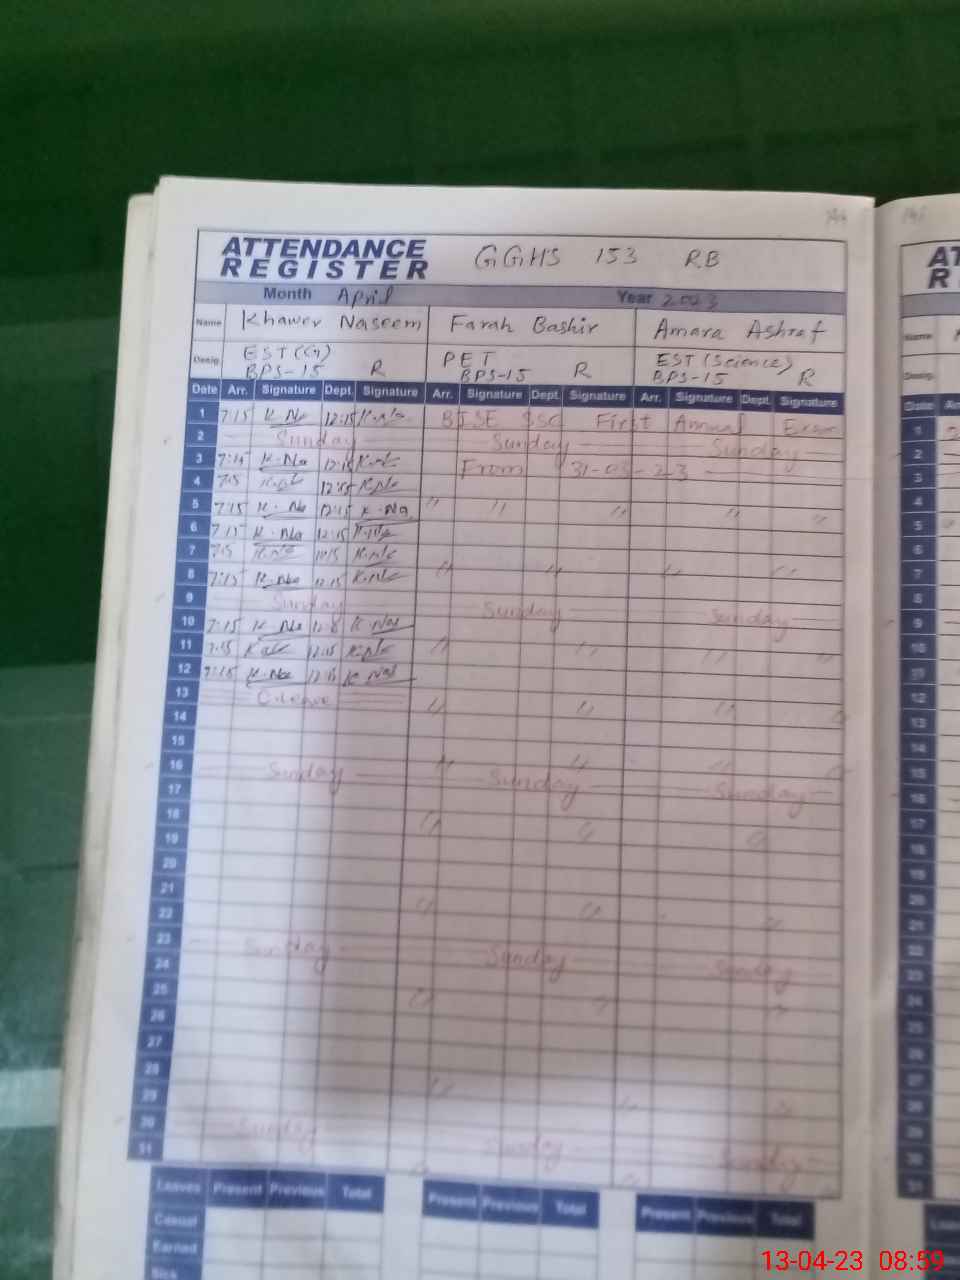 146 146
ATTENDANCE REGISTER GGHS 153 RB
Month April Year 2023
Name Khawer Naseem Farah Bashir Amara Ashraf
Desig. EST(G) BPS-15 R PET BPS-15 R EST (Science) BPS-15 R
Date Arr. Signature Dept. Signature Arr. Signature Dept. Signature Arr. Signature Dept. Signature
1 7:15 K-Na 12:15 K-Na BISE SSC First Annual Exam
2 Sunday Sunday Sunday
3 7:15 K-Na 12:15 K-Na From 31-03-23
4 7:15 K-Na 12:15 K-Na
5 7:15 K-Na 12:15 K-Na " " " " "
6 7:15 K-Na 12:15 K-Na
7 K-Na K-Na
8 7:15 K-Na 12:15 K-Na " " " "
9 Sunday Sunday Sunday
10 7:15 K-Na K-Na
11 7:15 12:15 K-Na " " " "
12 7:15 K-Na 12:15 K-Na
13 C-Leave
14 " " " "
15
16 Sunday " Sunday " Sunday " "
17
18 " " "
19
20
21
22 " " "
23 Sunday Sunday Sunday
24
25 " " "
26
27
28
29 " " "
30 Sunday Sunday Sunday
31
Leaves Present Previous Total Present Previous Total Present Previous Total
Casual
Earned
Sick
13-04-23 08:59